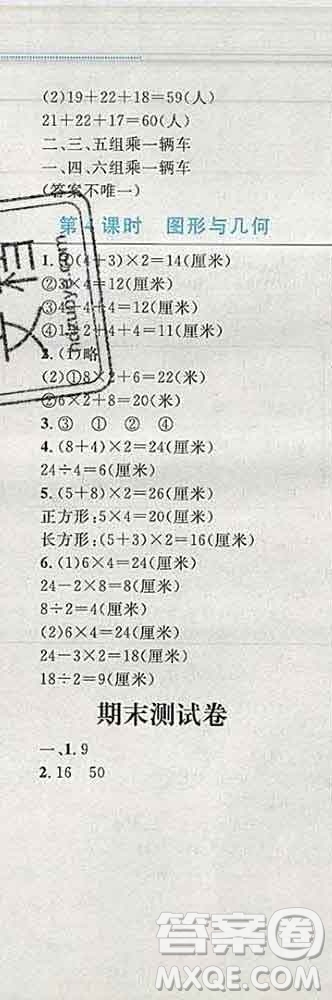 (2)19+22+18=59(人)
21+22+17=60(人)
二、三、五组乘一辆车
一、四、六组乘一辆车
(答案不唯一)
第4课时 图形与几何
1.①(4+3)×2=14(厘米)
②3×4=12(厘米)
③4×4=12(厘米)
④4+2+4=11(厘米)
2.(1)略
(2)①8×2+6=22(厘米)
②6×2+8=20(厘米)
3.③ ① ② ④
4.(8+4)×2=24(厘米)
24÷4=6(厘米)
5.(5+8)×2=26(厘米)
正方形:5×4=20(厘米)
长方形:(5+3)×2=16(厘米)
6.(1)6×4=24(厘米)
24-2×8=8(厘米)
8÷2=4(厘米)
(2)6×4=24(厘米)
24-3×2=18(厘米)
18÷2=9(厘米)
期末测试卷
一、1.9
2.16 50
答案圈
MXQE.COM